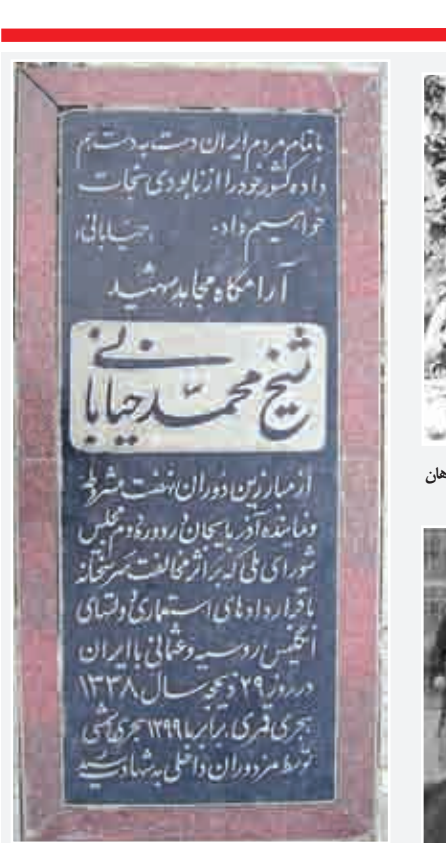 با تمام مردم ایران دست به دست هم
داده کشور خود را از نابودی نجات
خواهیم داد. «خیابانی»
آرامگاه مجاهد شهید
شیخ محمد خیابانی
از مبارزین دوران نهضت مشروطه
و نماینده آذربایجان در دوره دوم مجلس
شورای ملی که بر اثر مخالفت سرسختانه
با قراردادهای استعماری دولتهای
انگلیس روسیه و عثمانی با ایران
در روز ۲۹ ذیحجه سال ۱۳۳۸
هجری قمری برابر با ۱۲۹۹ هجری شمسی
توسط مزدوران داخلی به شهادت رسید
هان